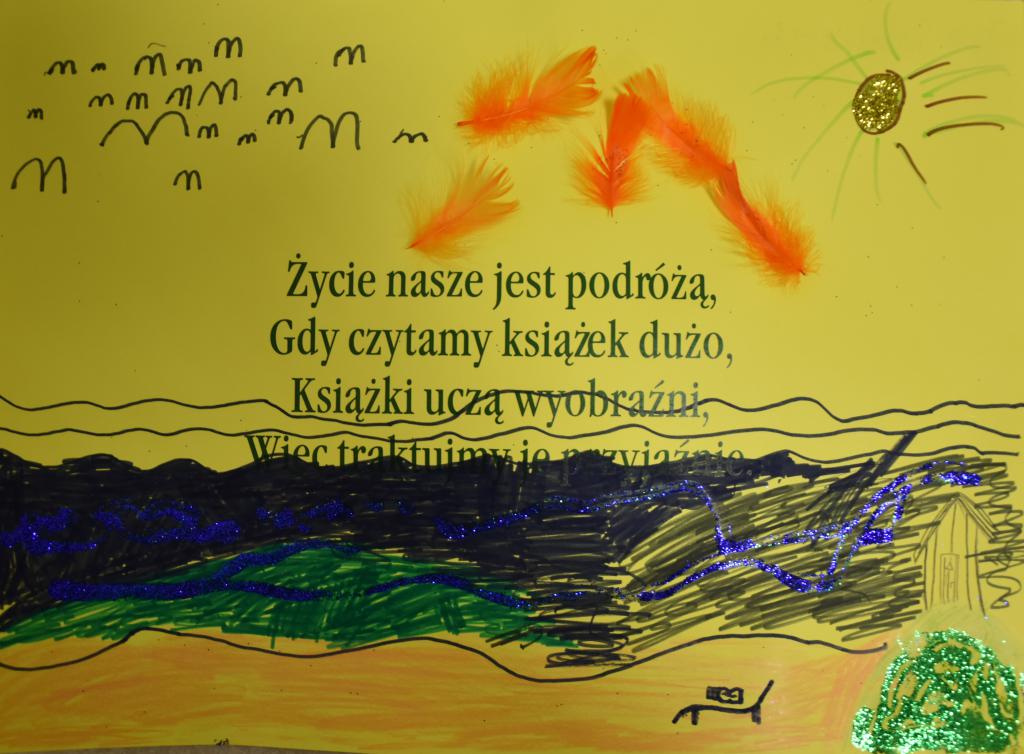 Życie nasze jest podróżą,
Gdy czytamy książek dużo,
Książki uczą wyobraźni,
Więc traktujmy je przyjaźnie.